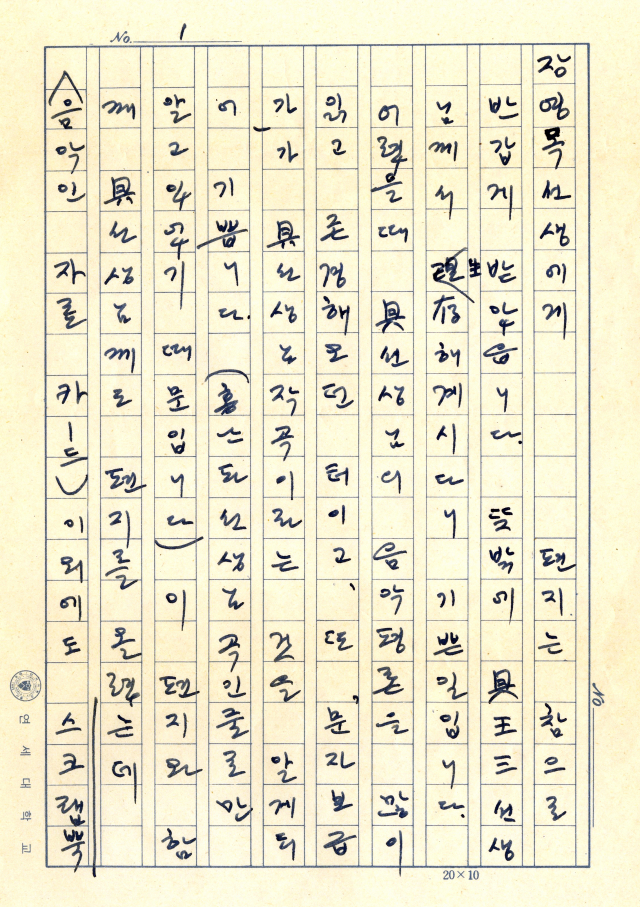 No. 1
장영목 선생에게 편지는 참으로
반갑게 받았읍니다. 뜻밖에 具王三 선생
님께서 生存해 계시다니 기쁜 일입니다.
어렸을 때 具선생님의 음악평론을 많이
읽고 존경해 오던 터이고, 또, 문자보급
가-가 具선생님 작곡이라는 것을 알게 되
어 기쁩니다. (홍난파 선생님 곡인줄로만
알고 있었기 때문입니다) 이 편지와 함
께 具선생님께도 편지를 올렸는데
<음악인 자료 카드> 이외에도 스크랩북
No.
연세대학교
20×10